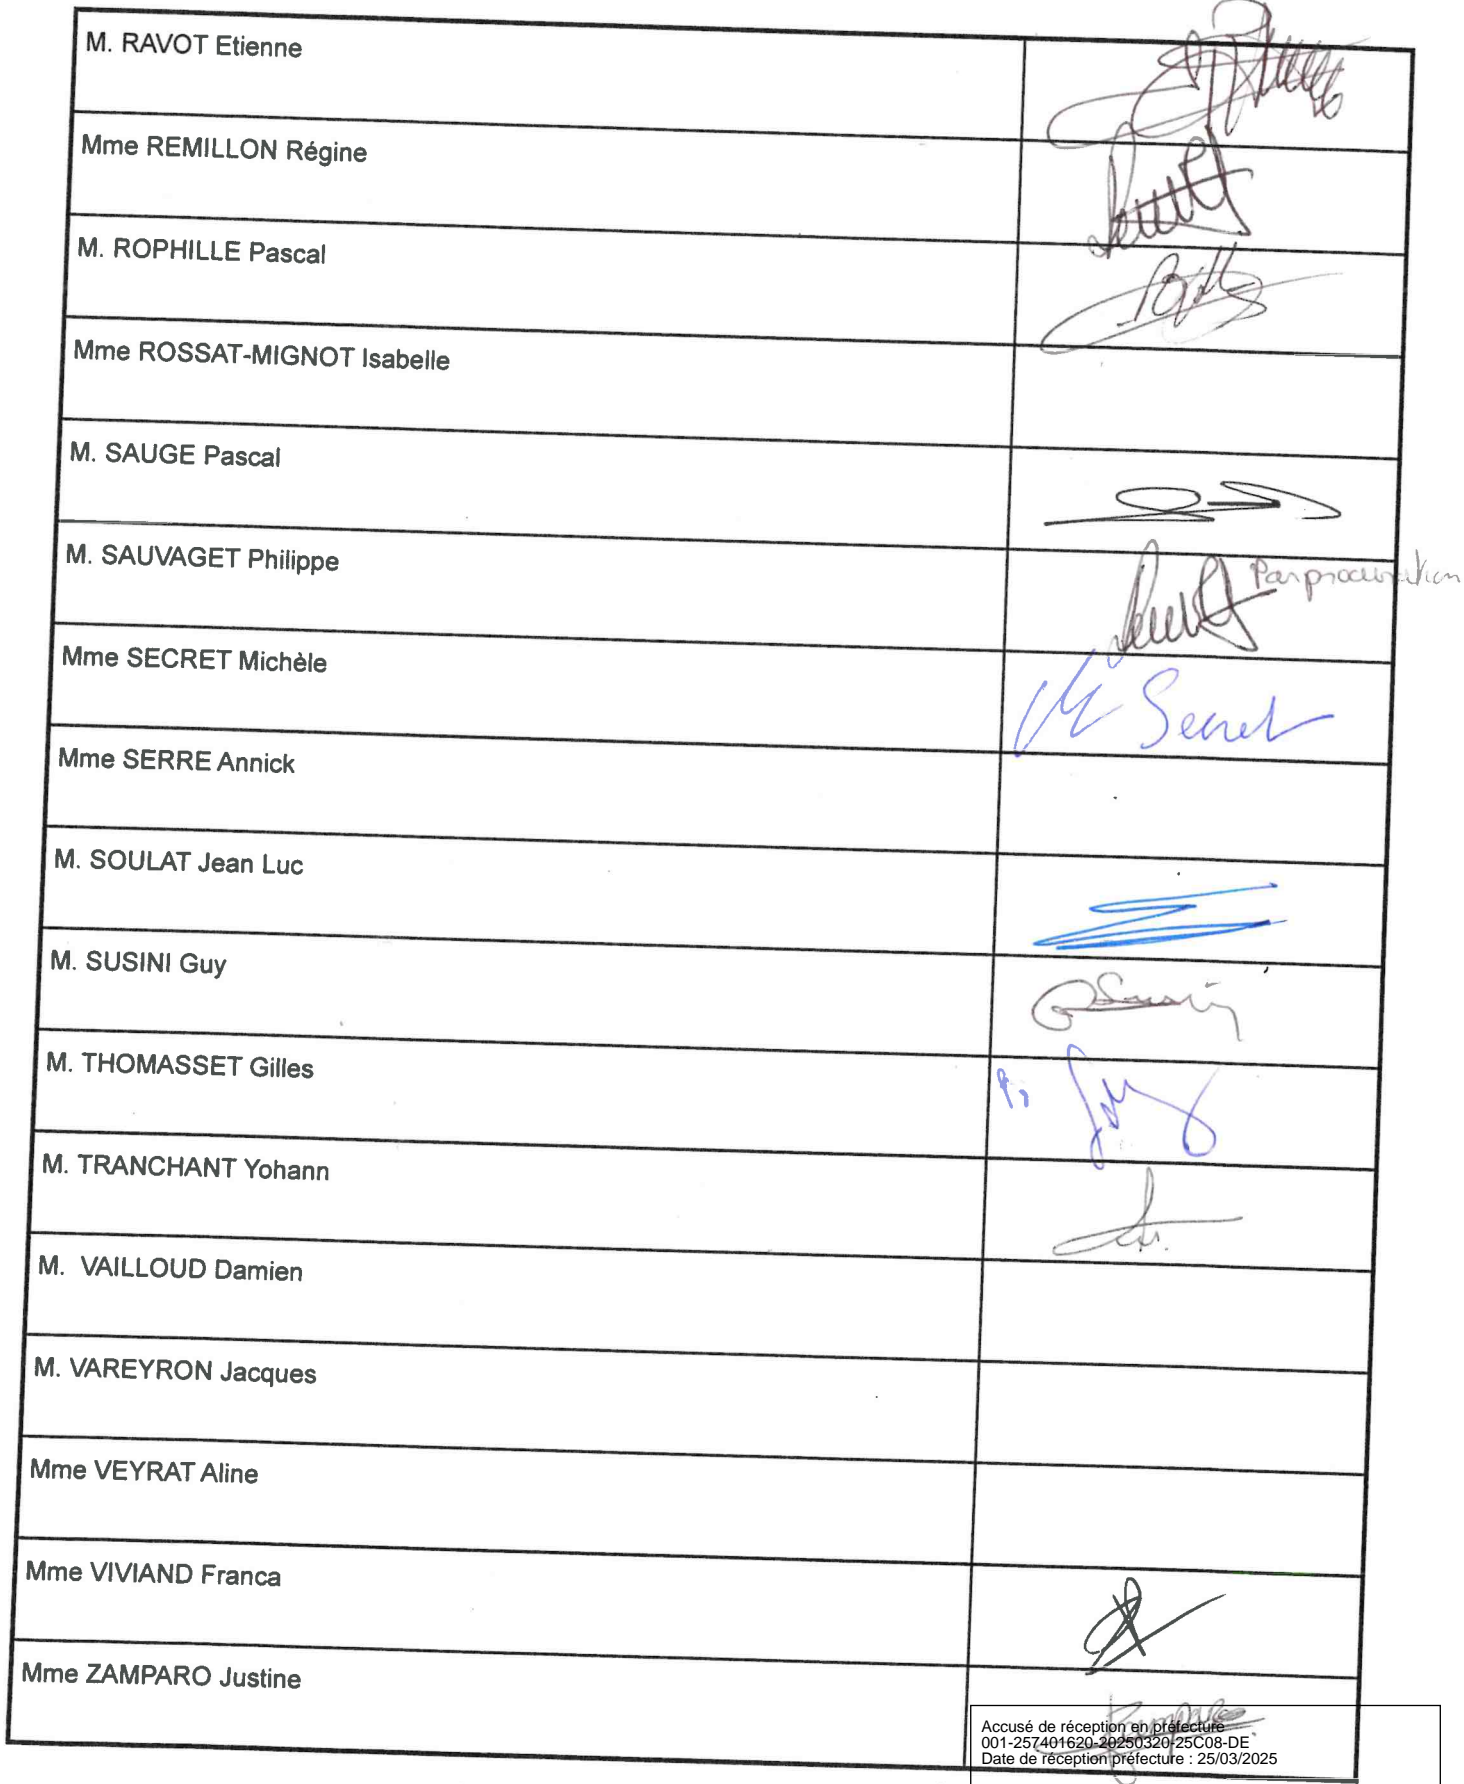 M. RAVOT Etienne
Mme REMILLON Régine
M. ROPHILLE Pascal
Mme ROSSAT-MIGNOT Isabelle
M. SAUGE Pascal
M. SAUVAGET Philippe
Par procuration
Mme SECRET Michèle
M Secret
Mme SERRE Annick
M. SOULAT Jean Luc
M. SUSINI Guy
M. THOMASSET Gilles
M. TRANCHANT Yohann
M. VAILLOUD Damien
M. VAREYRON Jacques
Mme VEYRAT Aline
Mme VIVIAND Franca
Mme ZAMPARO Justine
Accusé de réception en préfecture
001-257401620-20250320-25C08-DE
Date de réception préfecture : 25/03/2025